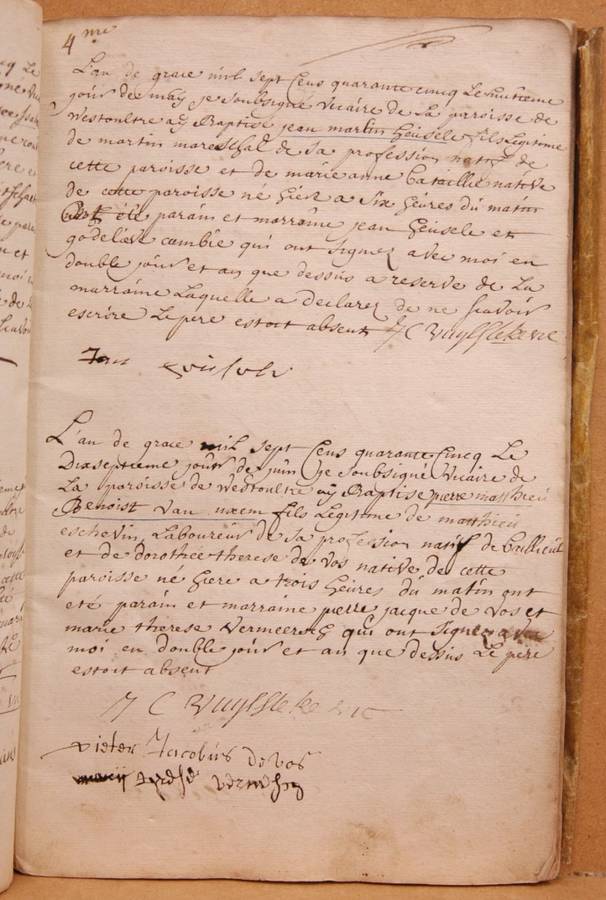 4 me
L'an de grace mil sept Cens quarante cinq Le huitieme
jour de may je soubsigné vicaire de La paroisse de
Westoultre ay Baptisé jean martin Geusele fils Legitime
de martin mareschal de sa profession natif de
cette paroisse et de marie anne Bataillie native
de cette paroisse né hier a six heures du matin
été parain et marraine jean Geusele et
godelieve cambie qui ont signez avec moi en
double jour et an que dessus a reserve de La
marraine Laquelle a declarez de ne scavoir
escrire Le pere estoit absent J C Vuylsteke vic
Jan
L'an de grace mil sept Cens quarante Cinq Le
Dixseptieme jour de juin je soubsigné vicaire de
La paroisse de Westoultre ay Baptisé pierre matthieu
Benoist van uxem fils Legitime de matthieu
eschevin Laboureur de sa profession natif de Bailleul
et de dorothée therese de vos native de cette
paroisse né hiere a trois heures du matin ont
eté parain et marraine pierre jacque de vos et
marie therese vermeersch qui ont signez avec
moi en double jour et an que dessus Le pere
estoit absent
J C Vuylsteke vic
Pieter Jacobus de vos